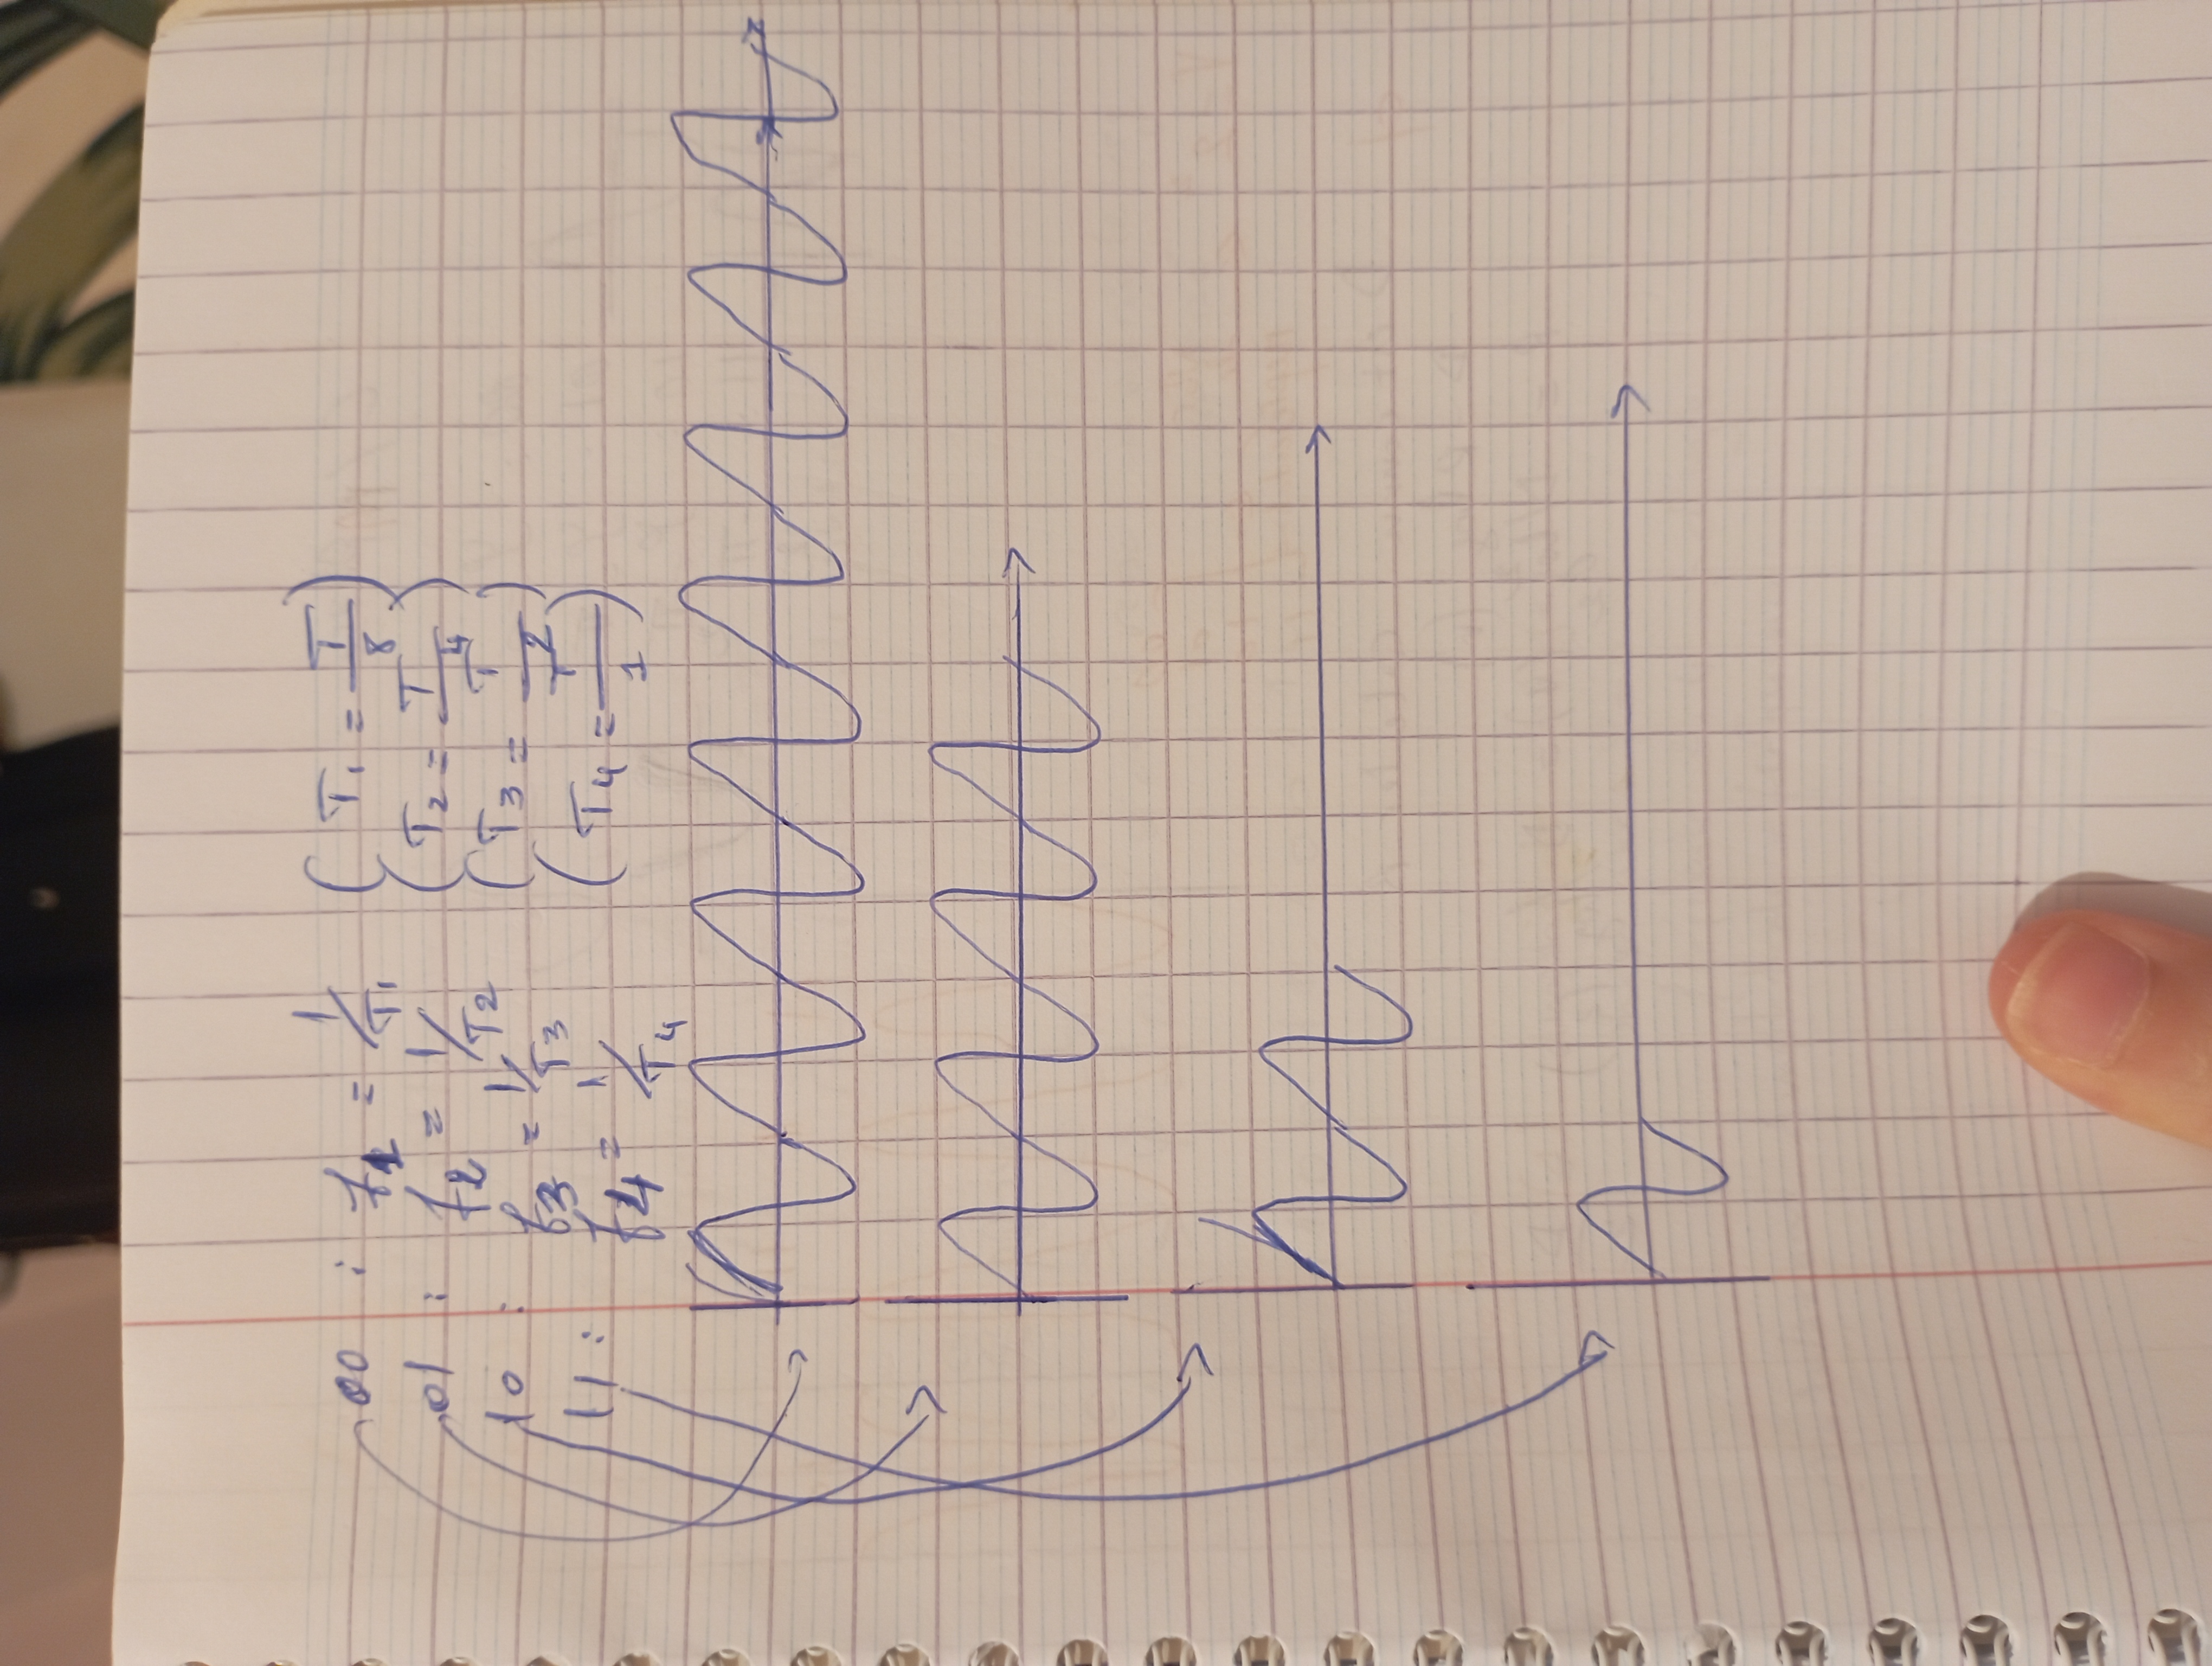 00 : f1 = 1/T1 ( T1 = T/8 )
01 : f2 = 1/T2 ( T2 = T/4 )
10 : f3 = 1/T3 ( T3 = T/2 )
11 : f4 = 1/T4 ( T4 = T/1 )